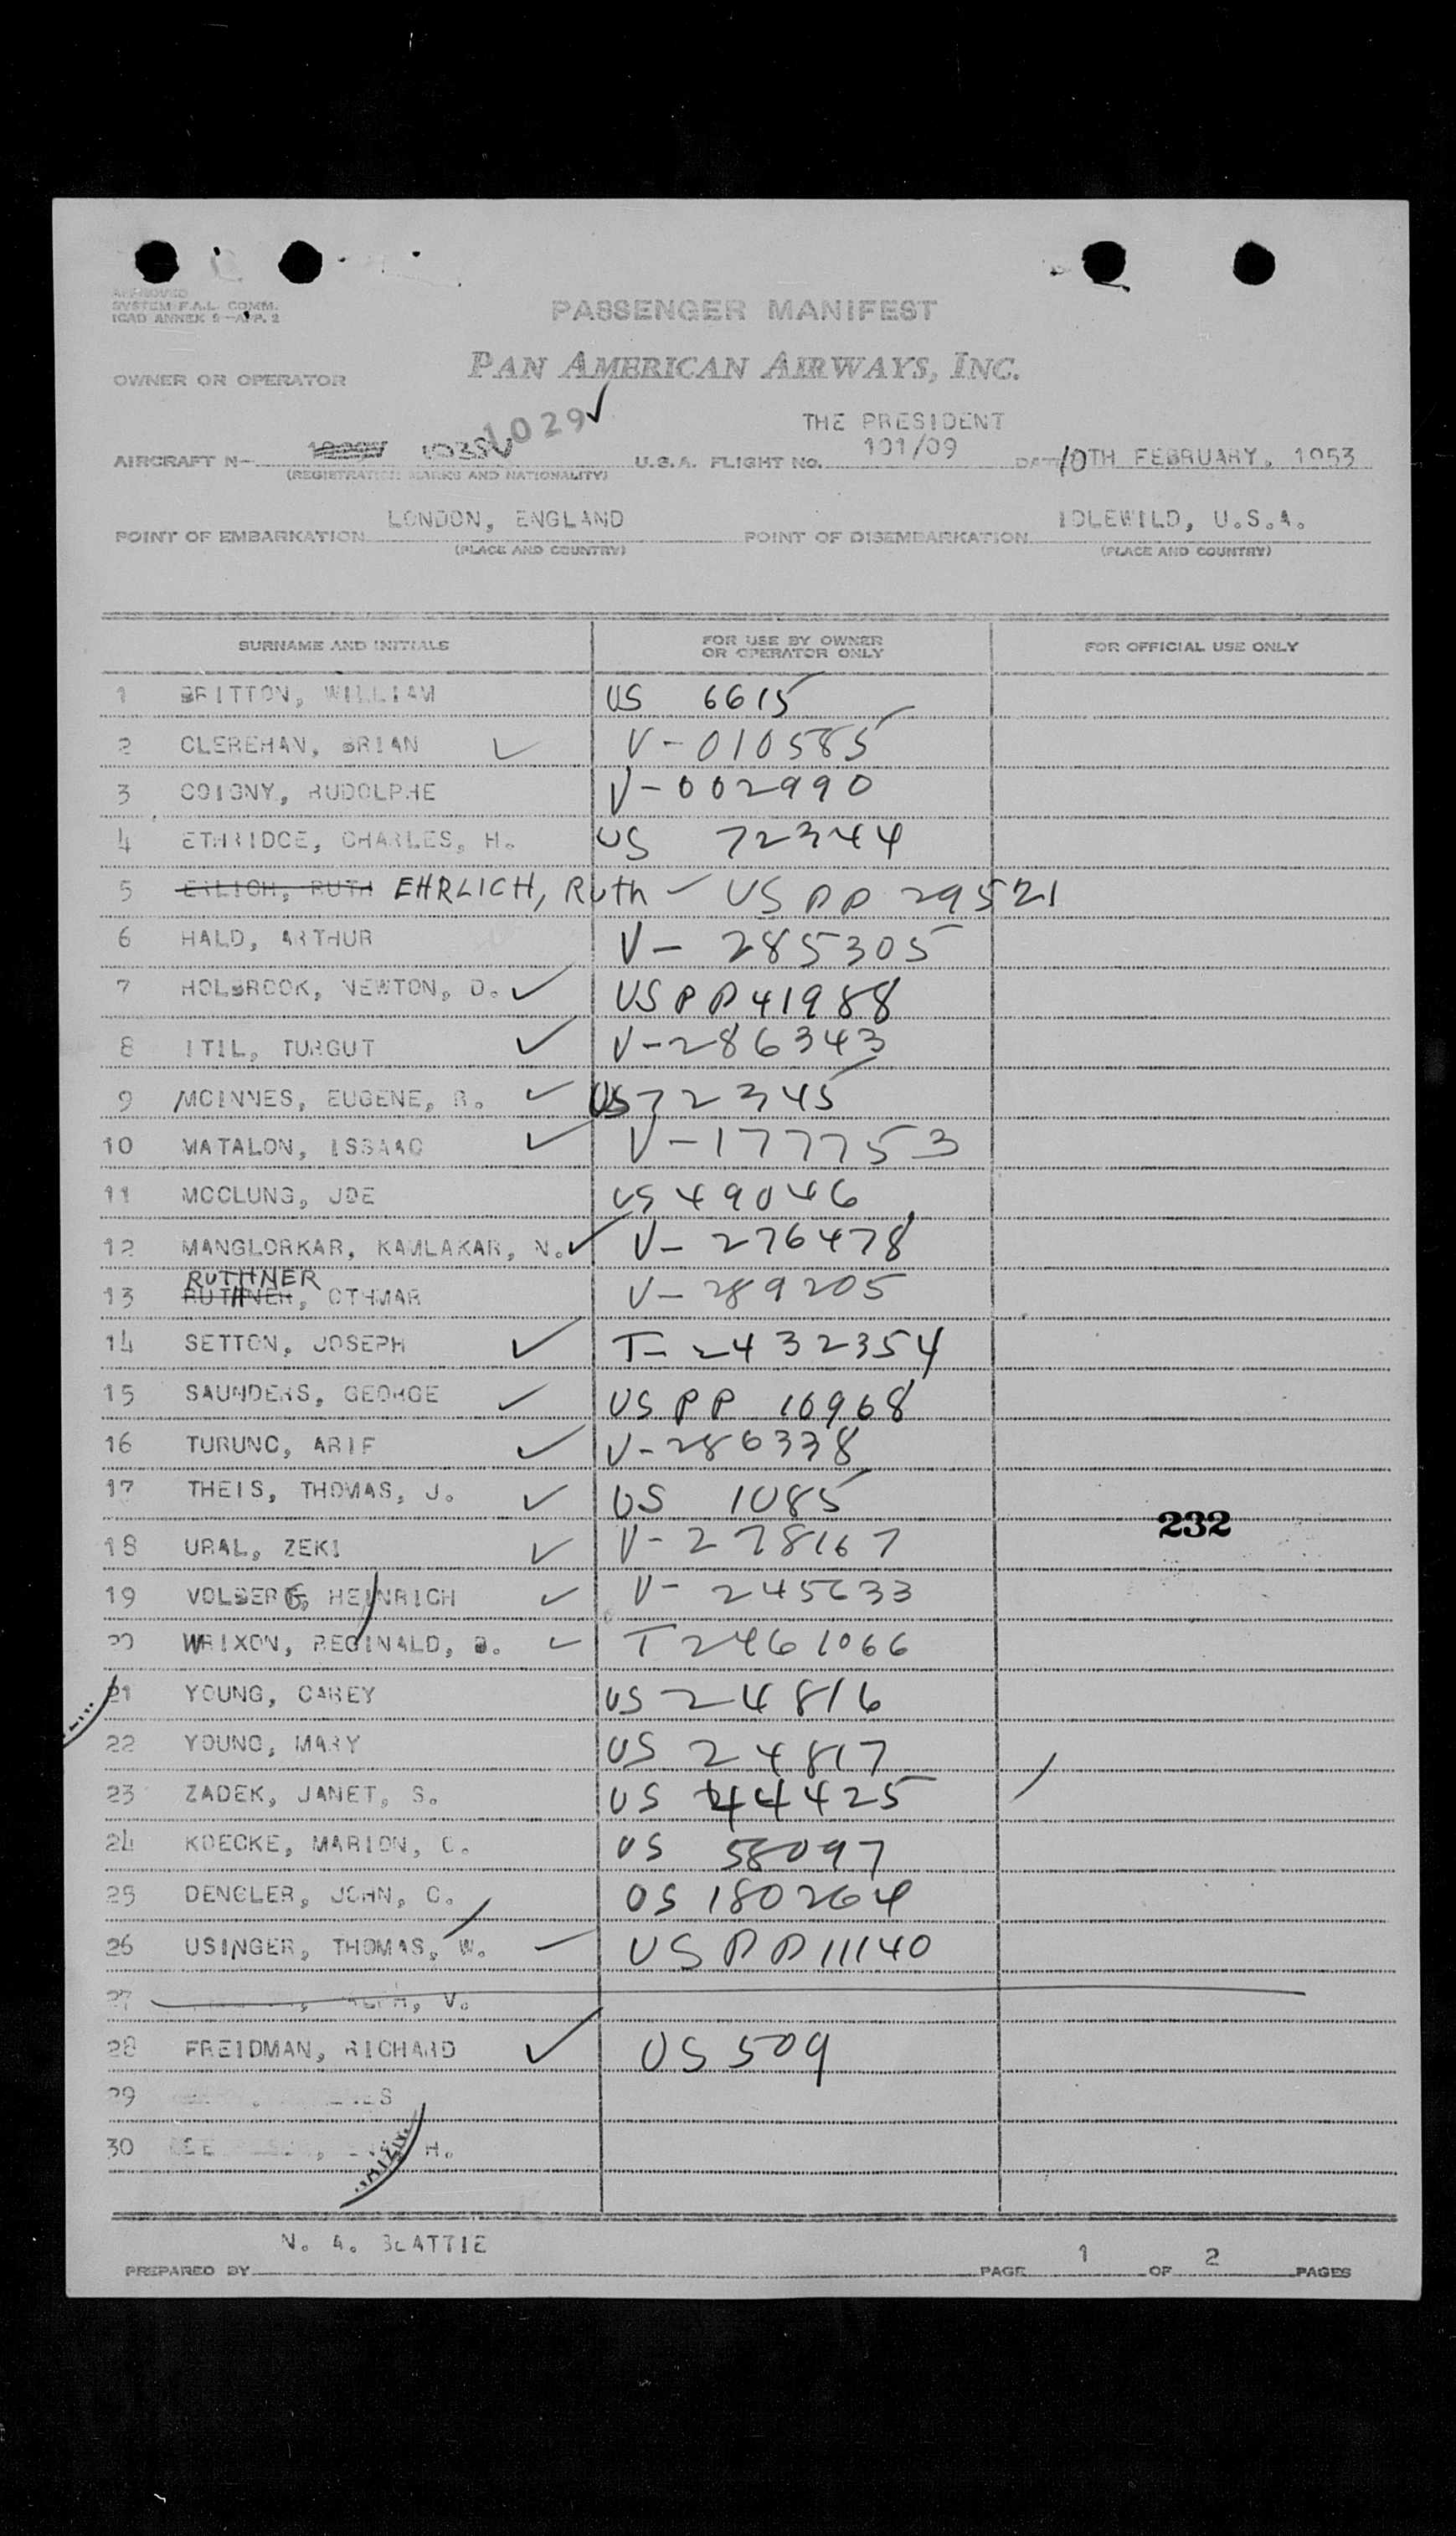 APPROVED
SYSTEM F.A.L. COMM.
ICAO ANNEX 9—APP. 2
PASSENGER MANIFEST
OWNER OR OPERATOR PAN AMERICAN AIRWAYS, INC.
1029
THE PRESIDENT
AIRCRAFT N— U.S.A. FLIGHT NO. 101/09 10TH FEBRUARY, 1953
(REGISTRATION MARKS AND NATIONALITY)
POINT OF EMBARKATION LONDON, ENGLAND POINT OF DISEMBARKATION IDLEWILD, U.S.A.
(PLACE AND COUNTRY) (PLACE AND COUNTRY)
SURNAME AND INITIALS FOR USE BY OWNER OR OPERATOR ONLY FOR OFFICIAL USE ONLY
1 BRITTON, WILLIAM US 6615
2 CLEREHAN, BRIAN V-010585
3 COIGNY, RUDOLPHE V-002990
4 ETHRIDGE, CHARLES, H. US 72344
5 ERLICH, RUTH EHRLICH, Ruth US PP 29521
6 HALD, ARTHUR V- 285305
7 HOLBROOK, NEWTON, D. US PP 41988
8 ITIL, TURGUT V-286343
9 MCINNES, EUGENE, R. US 72345
10 MATALON, ISSAAC V-177753
11 MCCLUNG, JOE US 49046
12 MANGLORKAR, KAMLAKAR, N. V- 276478
RUTHNER
13 RUTHNER, OTHMAR V- 289205
14 SETTON, JOSEPH T- 2432354
15 SAUNDERS, GEORGE US PP 10968
16 TURUNC, ARIF V-286338
17 THEIS, THOMAS, J. US 1085
232
18 URAL, ZEKI V-278167
19 VOLBERG, HEINRICH V- 245633
20 WRIXON, REGINALD, B. T 2461066
21 YOUNG, CAREY US 24816
22 YOUNG, MARY US 24817
23 ZADEK, JANET, S. US 44425
24 KOECKE, MARION, C. US 58097
25 DENGLER, JOHN, C. US 180264
26 USINGER, THOMAS, W. US PP 11140
27 V.
28 FREIDMAN, RICHARD US 509
29
30 H.
N. A. BEATTIE
PREPARED BY PAGE 1 OF 2 PAGES